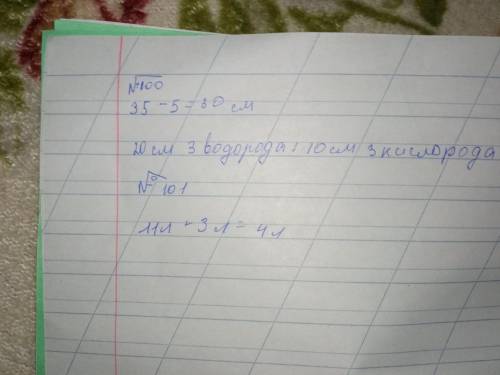 №100
35-5=30 см
20 см 3 водорода; 10 см 3 кислорода
№101
11л - 3л = 4л